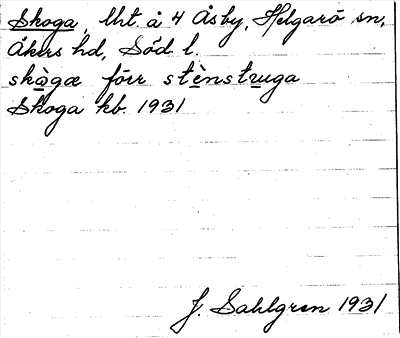 Skoga, lht. å 4 Åsby, Helgarö sn,
Åkers hd, Söd l.
skògæ förr stènstruga
Skoga kb. 1931
J. Sahlgren 1931